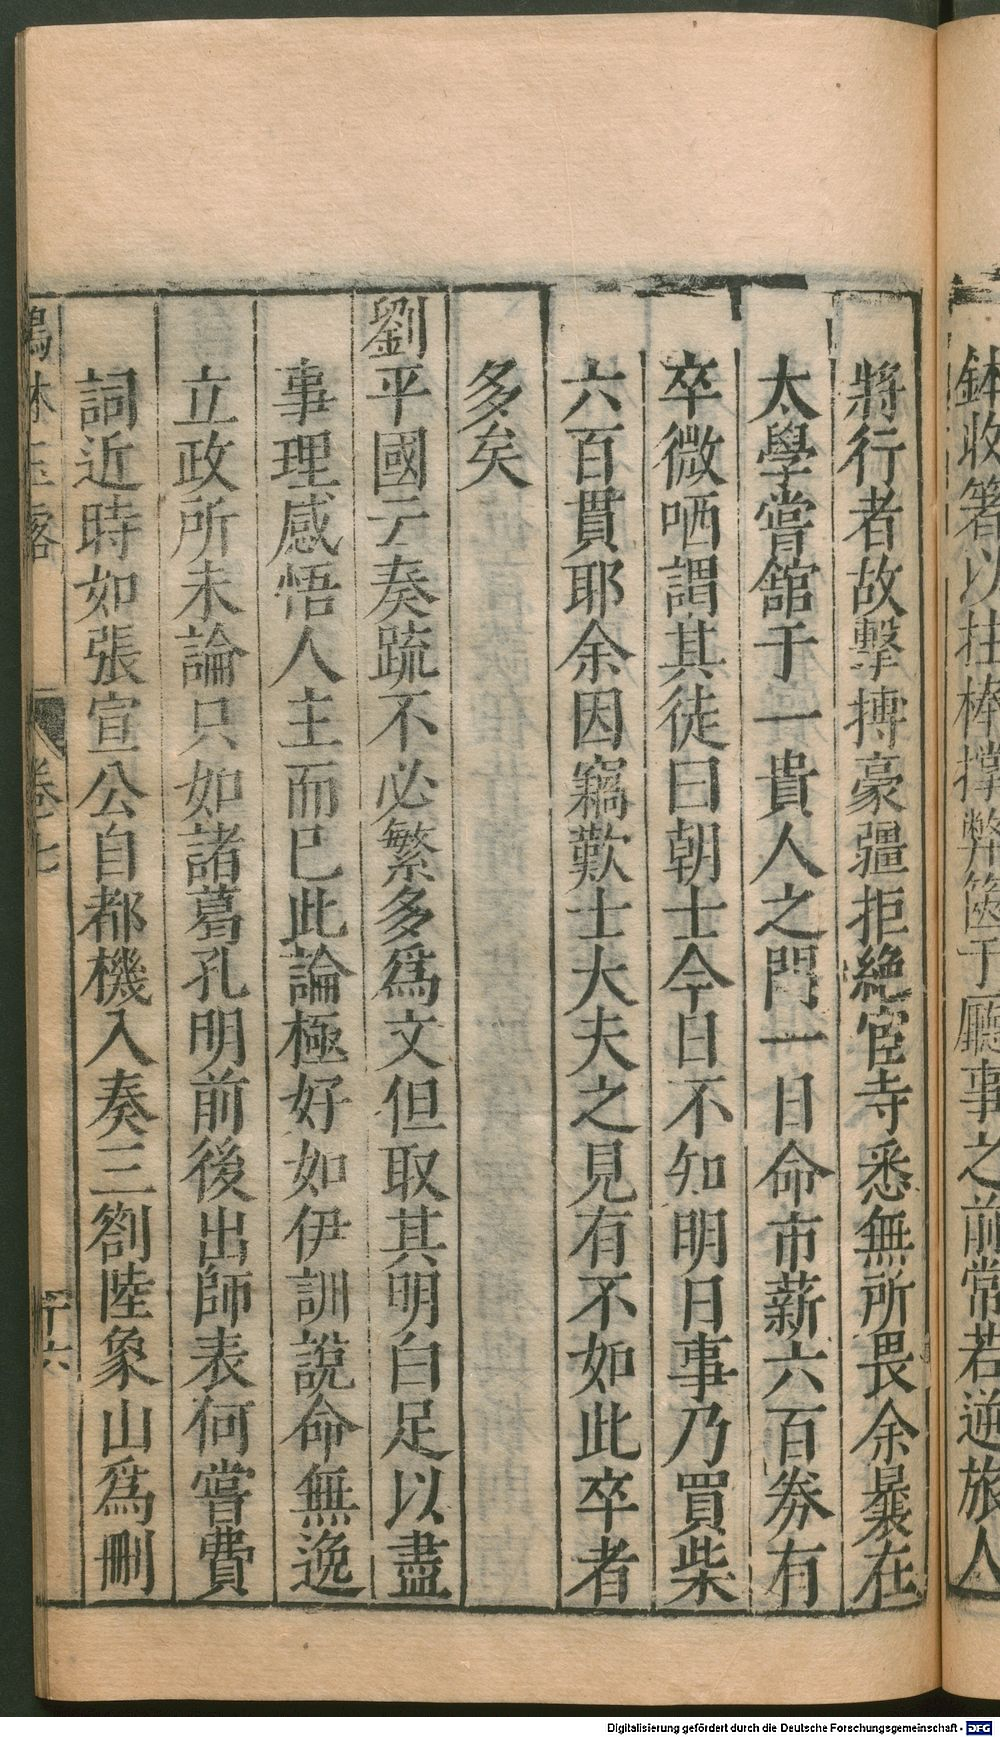 鉢收箸以拄棒撑弊篋于廳事之前常若逆旅人
將行者故擊搏豪彊拒絶宦寺悉無所畏余曩在
太學嘗舘于一貴人之門一日命市薪六百券有
卒微哂謂其徒曰朝士今日不知明日事乃買柴
六百貫耶余因竊歎士大夫之見有不如此卒者
多矣
劉平國云奏疏不必繁多爲文但取其明白足以盡
事理感悟人主而已此論極好如伊訓說命無逸
立政所未論只如諸葛孔明前後出師表何嘗費
詞近時如張宣公自都機入奏三劄陸象山爲刪
鶴林玉露
卷七
十六
Digitalisierung gefördert durch die Deutsche Forschungsgemeinschaft - DFG